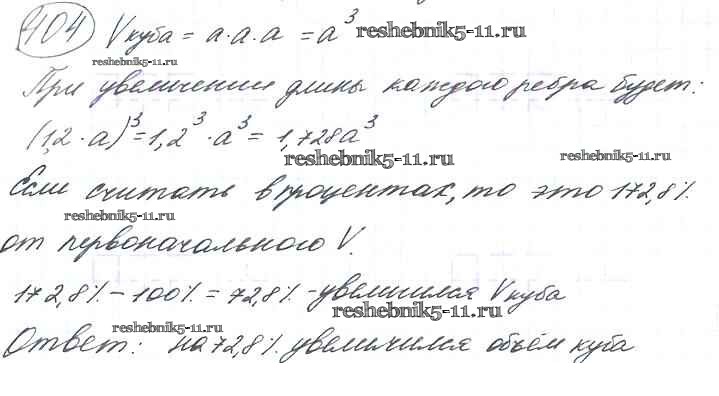 404 Vкуба = a·a·a = a³ reshebnik5-11.ru
reshebnik5-11.ru
При увеличении длины каждого ребра будет:
(1,2·a)³ = 1,2³·a³ = 1,728a³
reshebnik5-11.ru reshebnik5-11.ru
Если считать в процентах, то это 172,8%
reshebnik5-11.ru
от первоначального V.
172,8% – 100% = 72,8% - увеличился Vкуба
reshebnik5-11.ru reshebnik5-11.ru
Ответ: на 72,8% увеличился объём куба